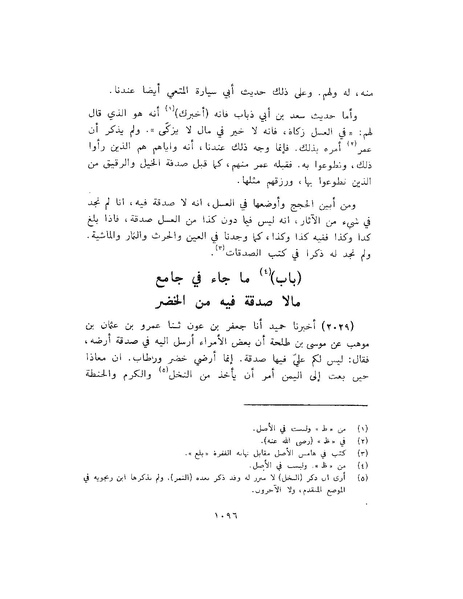 منه، له ولهم. وعلى ذلك حديث أبي سيارة المتعي أيضا عندنا.
وأما حديث سعد بن أبي ذباب فانه (أخبرك)(١) أنه هو الذي قال
لهم: «في العسل زكاة، فانه لا خير في مال لا يزكّى». ولم يذكر أن
عمر(٢) أمره بذلك. فإنما وجه ذلك عندنا، أنه واياهم هم الذين رأوا
ذلك، وتطوعوا به. فقبله عمر منهم، كما قبل صدقة الخيل والرقيق من
الذين تطوعوا بها، ورزقهم مثلها.
ومن أبين الحجج وأوضعها في العسل، انه لا صدقة فيه، انا لم نجد
في شيء من الآثار، انه ليس فيما دون كذا من العسل صدقة، فاذا بلغ
كذا وكذا ففيه كذا وكذا، كما وجدنا في العين والحرث والثمار والماشية.
ولم نجد له ذكرا في كتب الصدقات(٣).
(باب)(٤) ما جاء في جامع
مالا صدقة فيه من الخضر
(٢٠٢٩) أخبرنا حميد أنا جعفر بن عون ثنا عمرو بن عثمان بن
موهب عن موسى بن طلحة أن بعض الأمراء أرسل اليه في صدقة أرضه،
فقال: ليس لكم عليّ فيها صدقة. إنما أرضي خضر ورطاب. ان معاذا
حين بعث إلى اليمن أمر أن يأخذ من النخل(٥) والكرم والحنطة
(١) من «ط» وليست في الأصل.
(٢) في «ظ» (رضي الله عنه).
(٣) كتب في هامس الأصل مقابل نهاية الفقرة «بلغ».
(٤) من «ظ». وليست في الأصل.
(٥) أرى ان ذكر (النخل) لا مبرر له وقد ذكر بعده (التمر). ولم يذكرها ابن زنجويه في
الموضع المتقدم، ولا الآخرون.
١٠٩٦